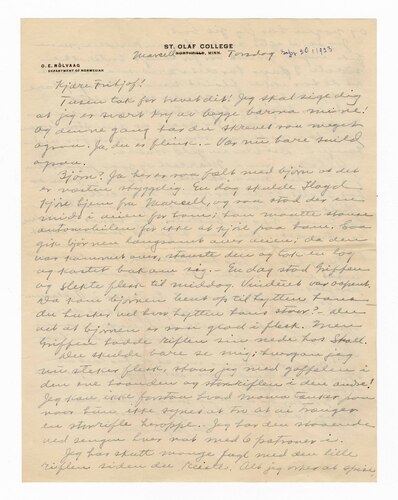 ST. OLAF COLLEGE
NORTHFIELD, MINN.
O. E. RÖLVAAG
DEPARTMENT OF NORWEGIAN
Marcell Torsdag 1923
Kjære
Tusen tak for brevet dit! Jeg skal sige dig
at jeg er svært kry av begge barna mine!
Og denne gang har du skrevet saa meget
ogsaa. Ja du er flink. – Vær nu bare snild
ogsaa.
Bjørn? Ja her er saa fælt med bjørn at det
er næsten styggelig. En dag skulde Lloyd
kjøre hjem fra Marcell, og saa stod der en
midt i veien for ham; han maatte stanse
automobilen for ikke at kjøre paa ham. Saa
gik bjørnen langsomt over veien; da den
var kommet over, stanste den og tok en
og kastet bak sig. – En dag stod Griffen
og stekte flesk til middag. Vinduet var
Da kom bjørnen bent op til hytten hans –
du husker vel hvor hytten hans staar? – du
vet at bjørnen er saa glad i flesk. Men
Griffen hadde riflen sin nede hos
Du skulde bare se mig; hvergang jeg
nu steker flesk, staar jeg med gaffelen i
den ene haanden og storriflen i den andre!
Jeg kan ikke forstaa hvad mama tænker paa
naar hun ikke synes at
en storrifle heroppe. Jeg har den staaende
ved sengen hver nat med 6 patroner i.
Jeg har skutt mange fugl med den lille
riflen siden du reiste. Alt jeg orker at spise